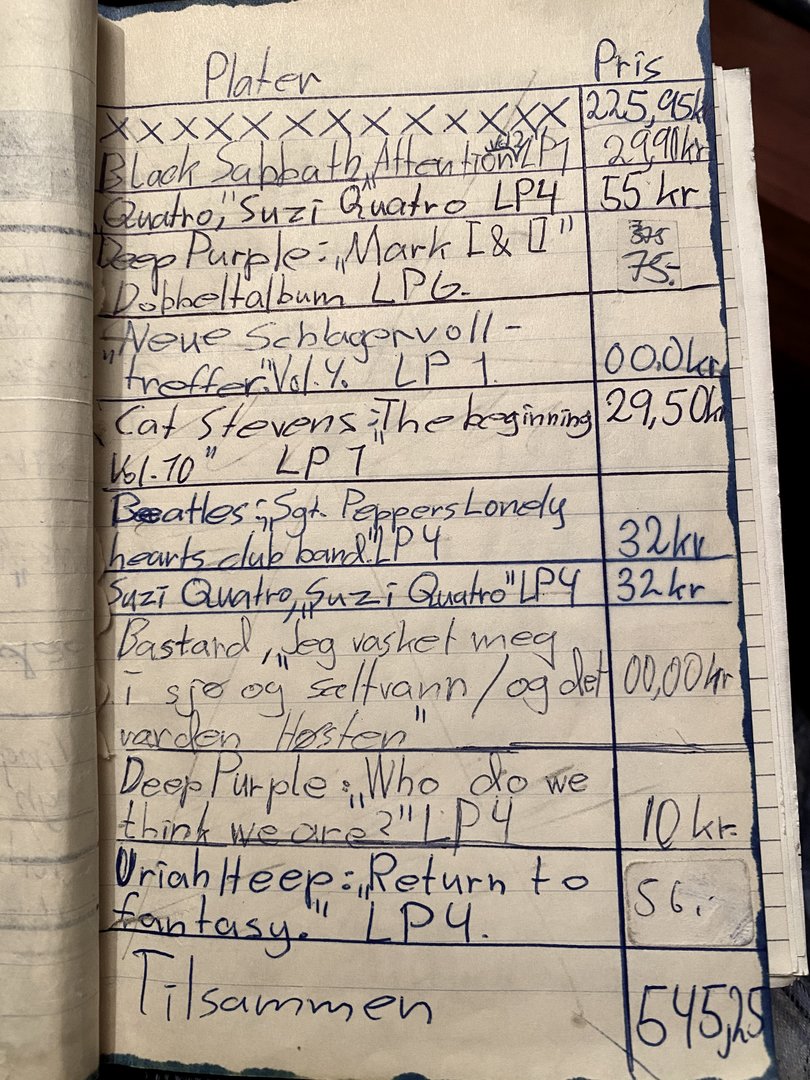 Plater Pris
XXXXXXXXXXXXX 225,95kr
Black Sabbath „Attention vol 2" LP1 29,90kr
Quatro," Suzi Quatro LP4 55 kr
Deep Purple: „Mark I & II" 375
Dobbeltalbum LP6. 75.-
„Neue Schlagervoll-
treffer". Vol. 4. LP 1. 00.0kr
Cat Stevens: „The beginning 29,50kr
Vol. 10" LP 1
Beatles: „Sgt. Peppers Lonely
hearts club band." LP4 32kr
Suzi Quatro, „Suzi Quatro" LP4 32kr
Bastard, „Jeg vasket meg
i sjø og saltvann / og det 00,00kr
varden Høsten"
Deep Purple: „Who do we
think we are?" LP4 10 kr.
Uriah Heep: „Return to 56.-
fantasy." LP4.
Tilsammen 545,25